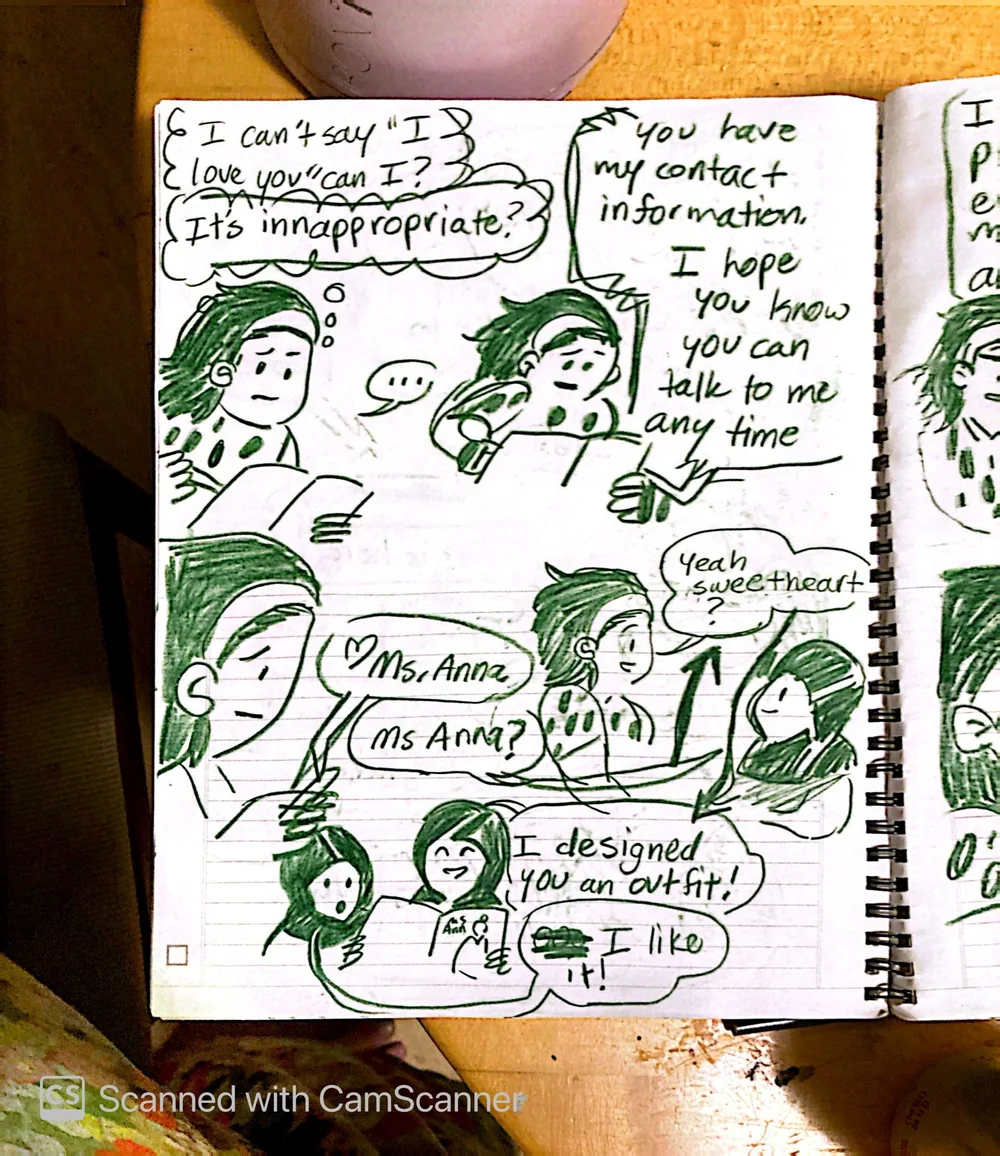 I can't say "I
love you" can I?
It's innappropriate?
you have
my contact
information.
I hope
you know
you can
talk to me
any time
...
Yeah
sweetheart
?
♡ Ms. Anna
ms Anna?
I designed
you an outfit!
I like
it!
ms
Ann
I
CS Scanned with CamScanner